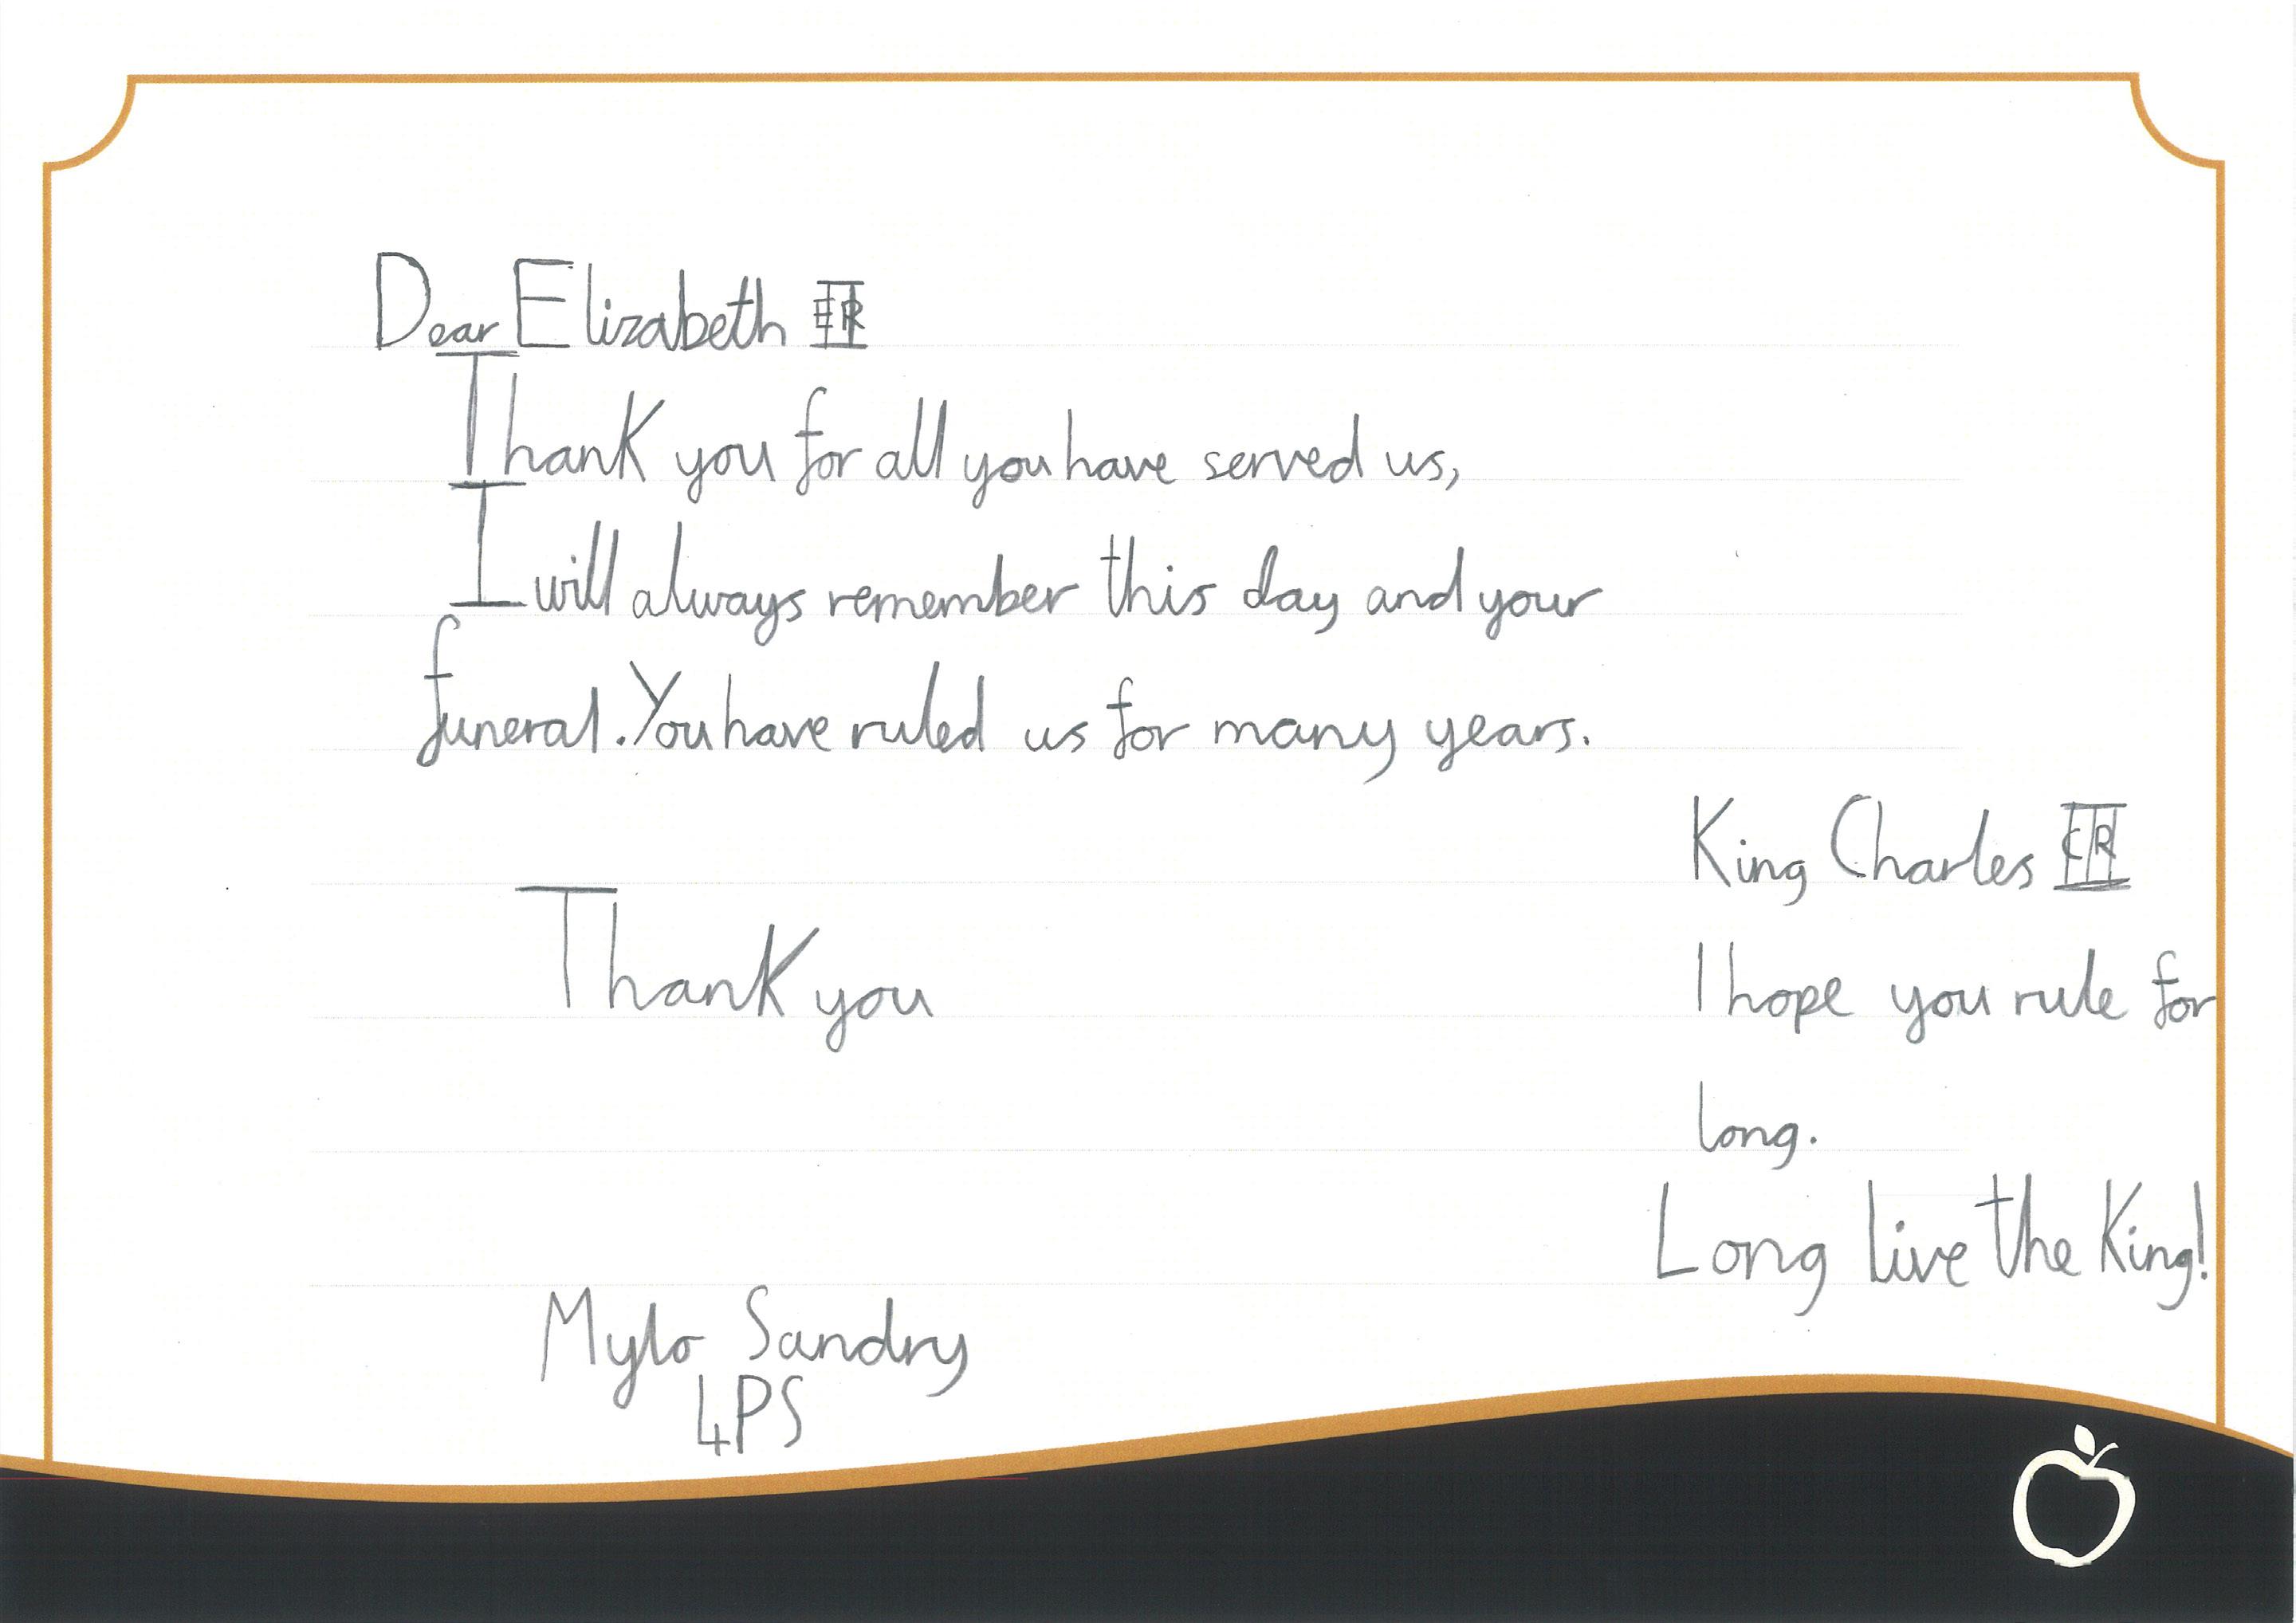 Dear Elizabeth II ER
Thank you for all you have served us,
I will always remember this day and your
funeral. You have ruled us for many years.
Thank you
Mylo Sandry
4PS
King Charles III CR
I hope you rule for
long.
Long live the King!